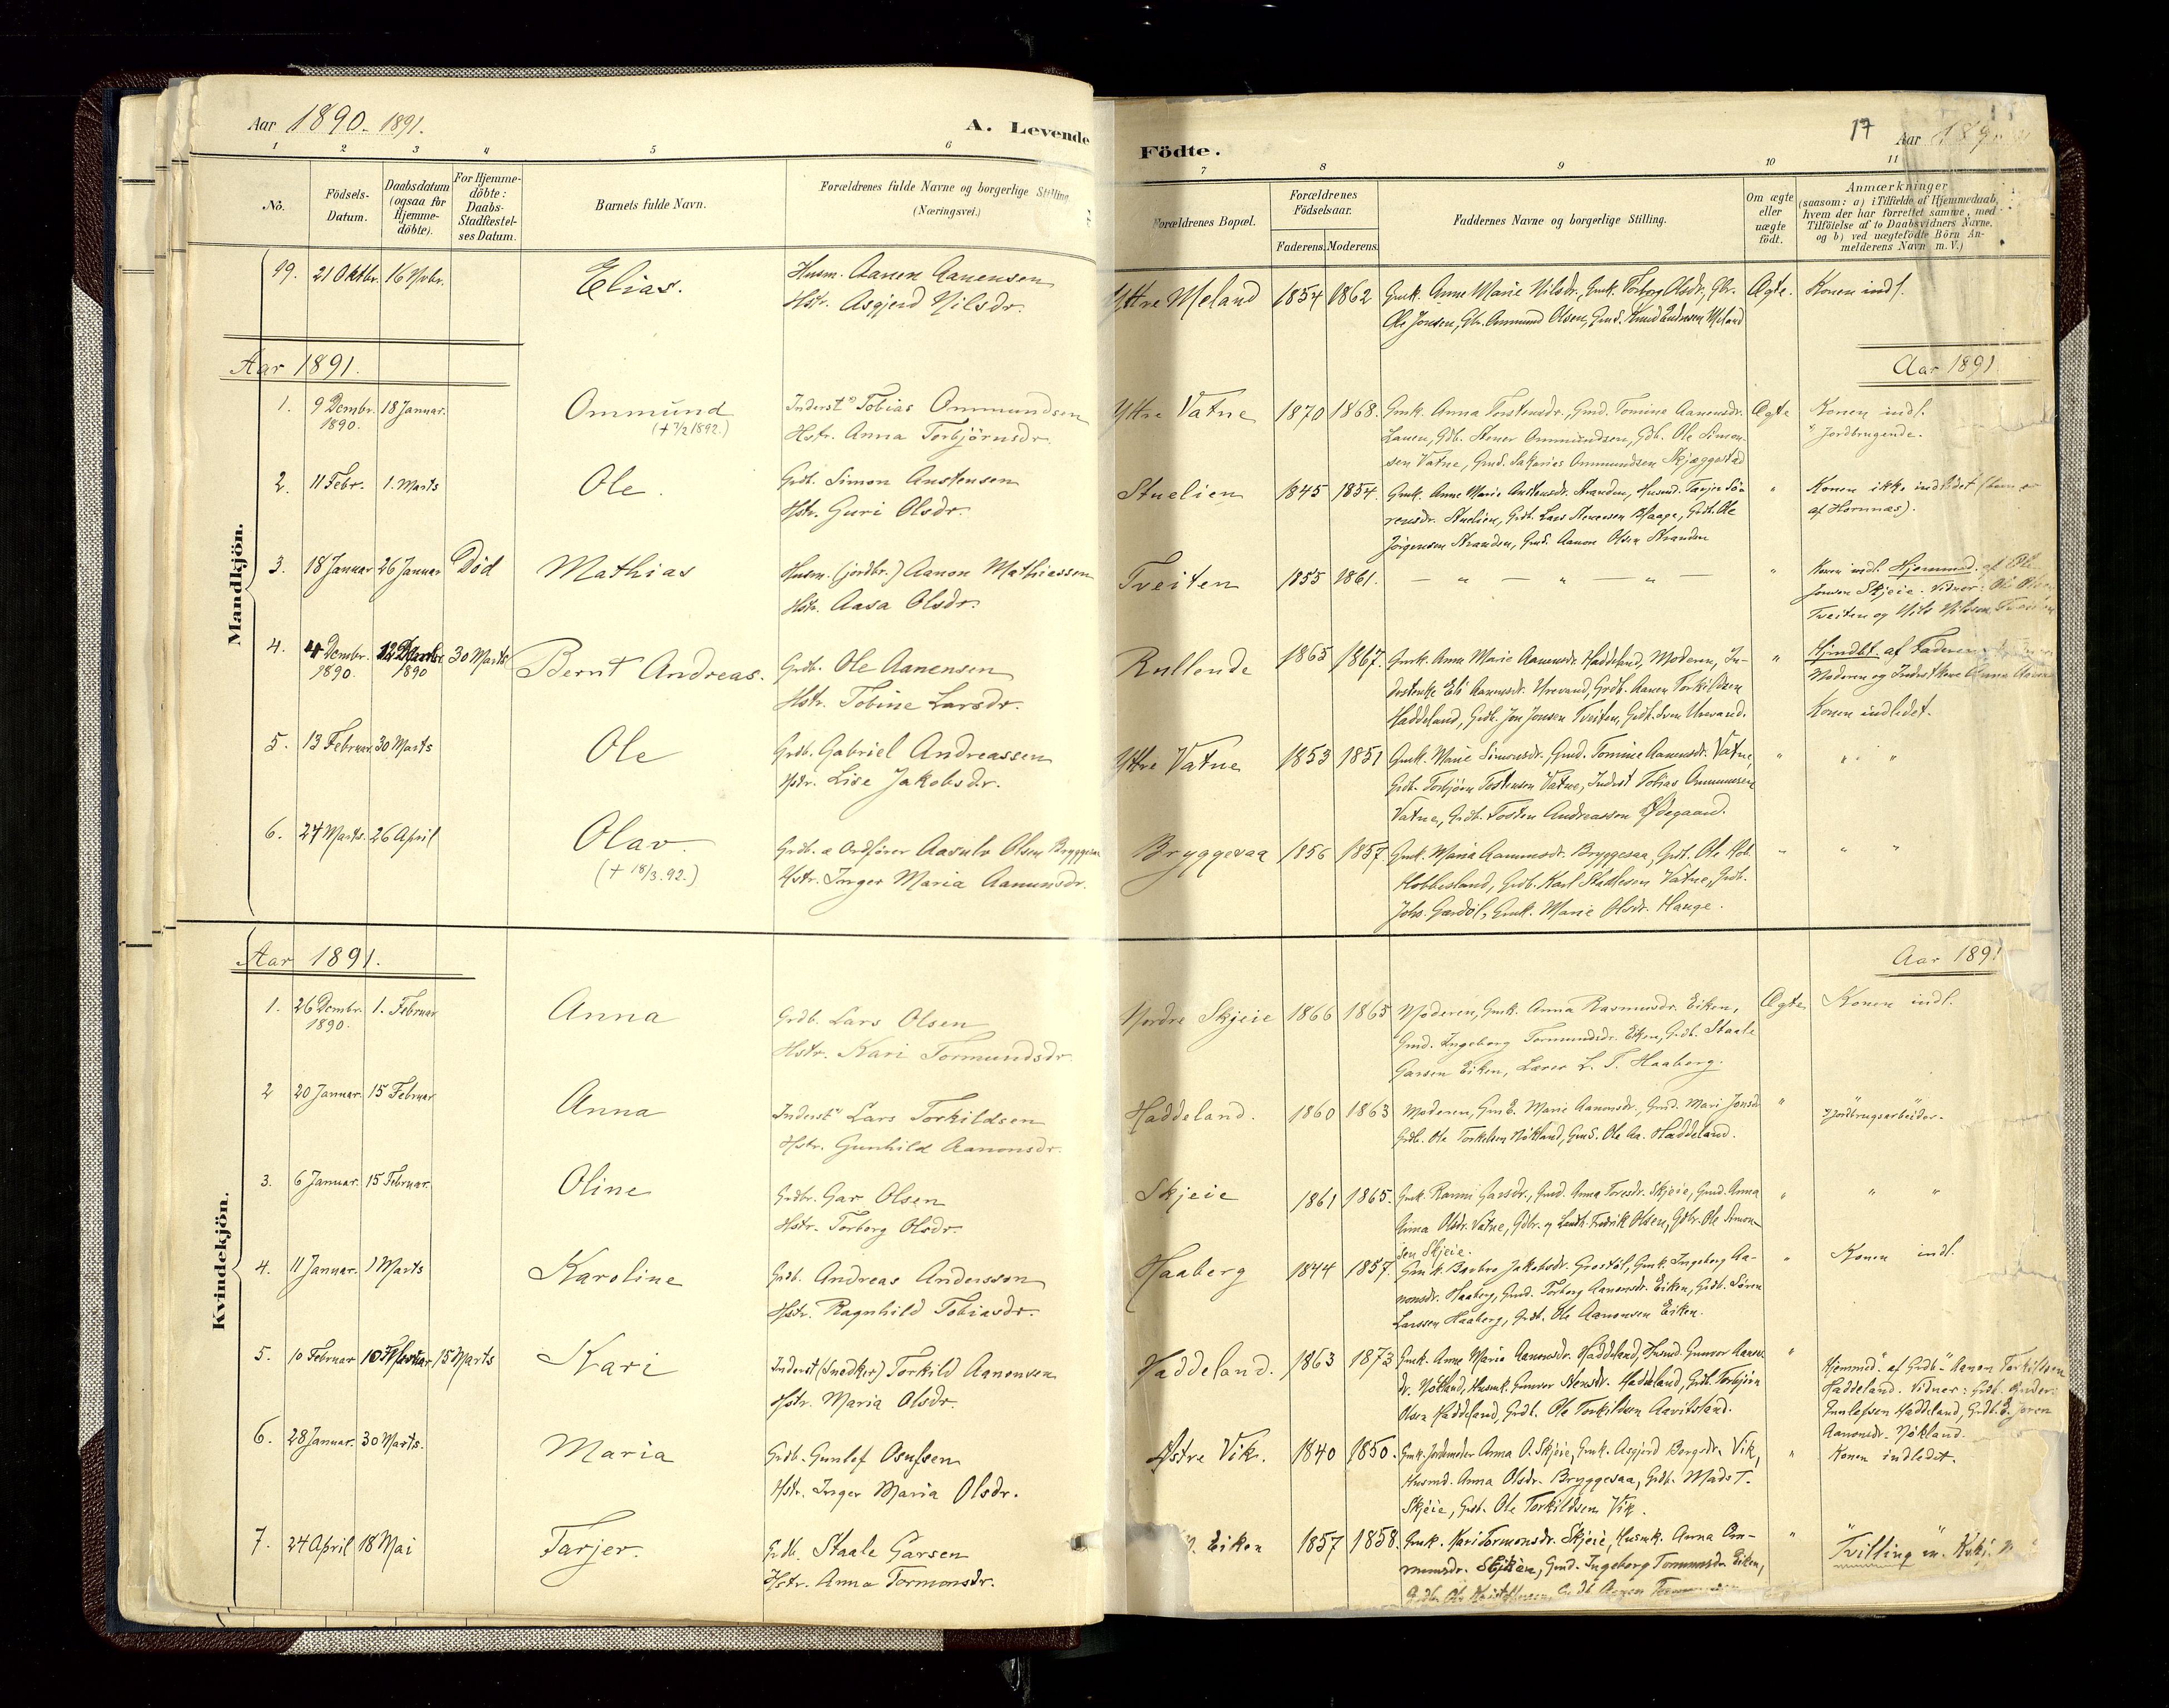 Aar 1890-1891.
A. Levende
Födte.
17
Aar 189
1 2 3 4 5 6 7 8 9 10 11
No.
Födsels-
Datum.
Daabsdatum
(ogsaa for
Hjemme-
döbte).
For Hjemme-
döbte:
Daabs-
Stadfæstel-
ses Datum.
Barnets fulde Navn.
Forældrenes fulde Navne og borgerlige Stilling
(Næringsvei.)
Forældrenes Bopæl.
Forældrenes
Födselsaar.
Faderens. Moderens.
Faddernes Navne og borgerlige Stilling.
Om ægte
eller
uægte
födt.
Anmærkninger
(saasom: a) i Tilfælde af Hjemmedaab,
hvem der har forrettet samme, med
Tilföielse af to Daabsvidners Navne,
og b) ved uægtefödte Börn An-
melderens Navn m. V.)
Mandkjön.
19. 21 Oktbr. 16 Novbr.
Elias.
Husm. Aanen Aanensen
Hstr. Asgjerd Nilsdr.
Yttre Meland 1854 1862
Gmk. Anne Marie Nilsdr., Gmk. Torborg Olsdr., Gbr.
Ole Jonsen, Gbr. Ommund Olsen, Gmd. Knud Andersen Meland
Ægte.
Konen indl.
Aar 1891.
Aar 1891
1. 9 Dcmbr. 18 Januar.
1890.
Ommund
(+ 7/2 1892.)
Inderst Tobias Ommundsen
Hstr. Anna Torbjörnsdr.
Yttre Vatne 1870 1868.
Gmk. Anna Torstensdr., Gmd. Tomine Aanensdr.
Lauen, Gdb. Stener Ommundsen, Gdb. Ole Simon-
sen Vatne, Gmd. Sakarias Ommundsen Skjæggestad
Ægte
Konen indl.
Jordbrugende.
2. 11 Febr. 1. Marts
Ole.
Grdb. Simon Anstensen
Hstr. Guri Olsdr.
Stuelien 1845 1854.
Gmk. Anne Marie Anstensdr. Stranden, Husmd. Tarjer Sö-
rensdr. Stuelien, Grdb. Lars Stenersen Haage, Grdb. Ole
Jörgensen Stranden, Gmd. Aanon Olsen Stranden
"
Konen ikke indledet (hun er
af Hornnæs).
3. 18 Januar 26 Januar Död
Mathias
Husm. (jordbr.) Aanon Mathiassen
Hstr. Aasa Olsdr.
Tveiten 1855 1861.
— " — " — " —
"
Konen indl. Hjemmed. af Ole
Jonsen Skjeie. Vidner: Ole Olsen
Tveiten og Nils Nilsen Tveiten
4. 4 Dcmbr. 12 Dcmbr. 30 Marts
1890. 1890
Bernt Andreas.
Grdb. Ole Aanensen
Hstr. Tobine Larsdr.
Rullende 1865 1867.
Gmk. Anne Marie Aanensdr. Haddeland, Moderen, In-
derstenke Eli Aanensdr. Urevand, Grdb. Aanen Torkildsen
Haddeland, Grdb. Jon Jonsen Tveiten, Grdb. Sven Urevand.
"
Hjmdbt. af Faderen
Moderen og Inderstkone Anna
Konen indledet.
5. 13 Februar. 30 Marts
Ole
Grdb. Gabriel Andreassen
Hstr. Lise Jakobsdr.
Yttre Vatne 1853 1851
Gmk. Marie Simonsdr., Gmd. Tomine Aanensdr. Vatne,
Grdb. Torbjörn Tostensen Vatne, Inderst Tobias Ommundsen
Vatne, Grdb. Tosten Andreassen Ødegaard.
" " "
6. 27 Marts. 26 April
Olav.
(+ 18/3.92.)
Grdb. & Ordförer Aasulv Olsen Bryggesaa
Hstr. Inger Maria Aanunsdr.
Bryggesaa 1856 1857
Gmk. Maria Aanunsdr. Bryggesaa, Grdb. Ole Hob.
Hobbesland, Grdb. Karl Stallesen Vatne, Grdb.
Johs. Gardöl, Gmk. Marie Olsdr. Hauge.
" " "
Kvindekjön.
Aar 1891.
Aar 1891
1. 26 Dcmbr. 1. Februar
1890.
Anna
Grdb. Lars Olsen
Hstr. Kari Tormundsdr.
Nordre Skjeie 1866 1865
Moderen, Gmk. Anna Rasmusdr. Eiken,
Gmd. Ingeborg Tormundsdr. Eiken, Grdb. Staale
Garsen Eiken, Lærer L. T. Haaberg.
Ægte
Konen indl.
2 20 Januar. 15 Februar
Anna
Inderst Lars Torkildsen
Hstr. Gunhild Aanonsdr.
Haddeland. 1860 1863
Moderen, Gmk. Marie Aanonsdr., Gmd. Mari Jonsdr.
Grdb. Ole Torkelsen Nökland, Gmd. Ole Aa. Haddeland.
" " "
Jordbrugsarbeider.
3. 6 Januar. 15 Februar.
Oline
Grdbr. Gar Olsen
Hstr. Torborg Olsdr.
Skjeie 1861 1865.
Gmk. Ranni Garsdr., Gmd. Anna Toresdr. Skjeie, Gmd. Anna
Olsdr. Vatne, Gdbr. og Landh. Fredrik Olsen, Gdbr. Ole Simon-
sen Skjeie.
" " "
4. 11 Januar. 1 Marts
Karoline
Grdb. Andreas Anderssen
Hstr. Ragnhild Tobiasdr.
Haaberg 1844 1857.
Gmk. Barbro Jakobsdr. Grostöl, Gmk. Ingeborg Aa-
nonsdr. Haaberg, Gmd. Torborg Aanensdr. Eiken, Grdb. Sören
Larssen Haaberg, Grdb. Ole Aanonsen Eiken.
"
Konen indl.
5. 10 Februar 10 Februar 15 Marts
Kari
Inderst (Snedker) Torkild Aanonsen
Hstr. Maria Olsdr.
Haddeland. 1863 1873
Gmk. Anne Maria Aanonsdr. Haddeland, Husmd. Gunvor Aanens-
dr. Nökland, Husmk. Gunvor Stensdr. Haddeland, Grdb. Torbjörn
Olsen Haddeland, Grdb. Ole Torkildsen Aavitsland.
"
Hjemmed. af Grdb. Aanon Torkildsen
Haddeland. Vidner: Grdb. Gunder
Gunlefsen Haddeland, Grdb. E. Joron
Aanonsdr. Nökland.
6. 28 Januar. 30 Marts.
Maria
Grdb. Gunlef Osufsen
Hstr. Inger Maria Olsdr.
Østre Vik. 1840 1850.
Gmk. Jordemoder Anna O. Skjeie, Gmk. Asgjerd Bergsdr. Vik,
Husmd. Anna Olsdr. Bryggesaa, Grdb. Mads T.
Skjeie, Grdb. Ole Torkildsen Vik.
"
Konen indledet.
7. 24 April 18 Mai
Tarjer.
Grdb. Staale Garsen
Hstr. Anna Tormonsdr.
Eiken 1857 1858.
Gmk. Kari Tormonsdr. Skjeie, Husmk. Anna Om-
munsdr. Skjeien, Gmd. Ingeborg Tormunsdr. Eiken,
Grdb. Ole Kristoffersen, Grdb. Aanen
" " "
Tvilling m. Kvkj. N